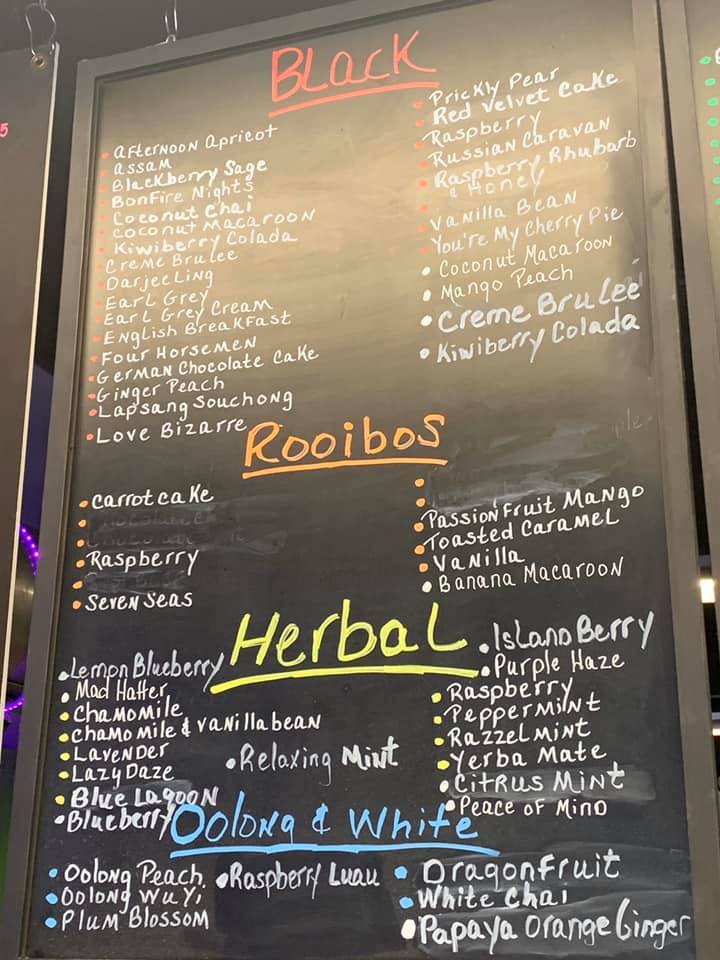 Black
Afternoon Apricot
Assam
Blackberry Sage
Bonfire Nights
Coconut Chai
Coconut Macaroon
Kiwiberry Colada
Creme Brulee
Darjeeling
Earl Grey
Earl Grey Cream
English Breakfast
Four Horsemen
German Chocolate Cake
Ginger Peach
Lapsang Souchong
Love Bizarre
Prickly Pear
Red Velvet Cake
Raspberry
Russian Caravan
Raspberry Rhubarb
& Honey
Vanilla Bean
You're My Cherry Pie
Coconut Macaroon
Mango Peach
Creme Brulee
Kiwiberry Colada
Rooibos
Carrot cake
Raspberry
Seven Seas
Passion Fruit Mango
Toasted Caramel
Vanilla
Banana Macaroon
Herbal
Lemon Blueberry
Mad Hatter
Chamomile
Chamomile & Vanilla bean
Lavender
Lazy Daze
Blue Lagoon
Blueberry
Relaxing Mint
Island Berry
Purple Haze
Raspberry
Peppermint
Razzelmint
Yerba Mate
Citrus Mint
Peace of Mind
Oolong & White
Oolong Peach
Oolong Wuyi
Plum Blossom
Raspberry Luau
Dragonfruit
White Chai
Papaya Orange Ginger
5